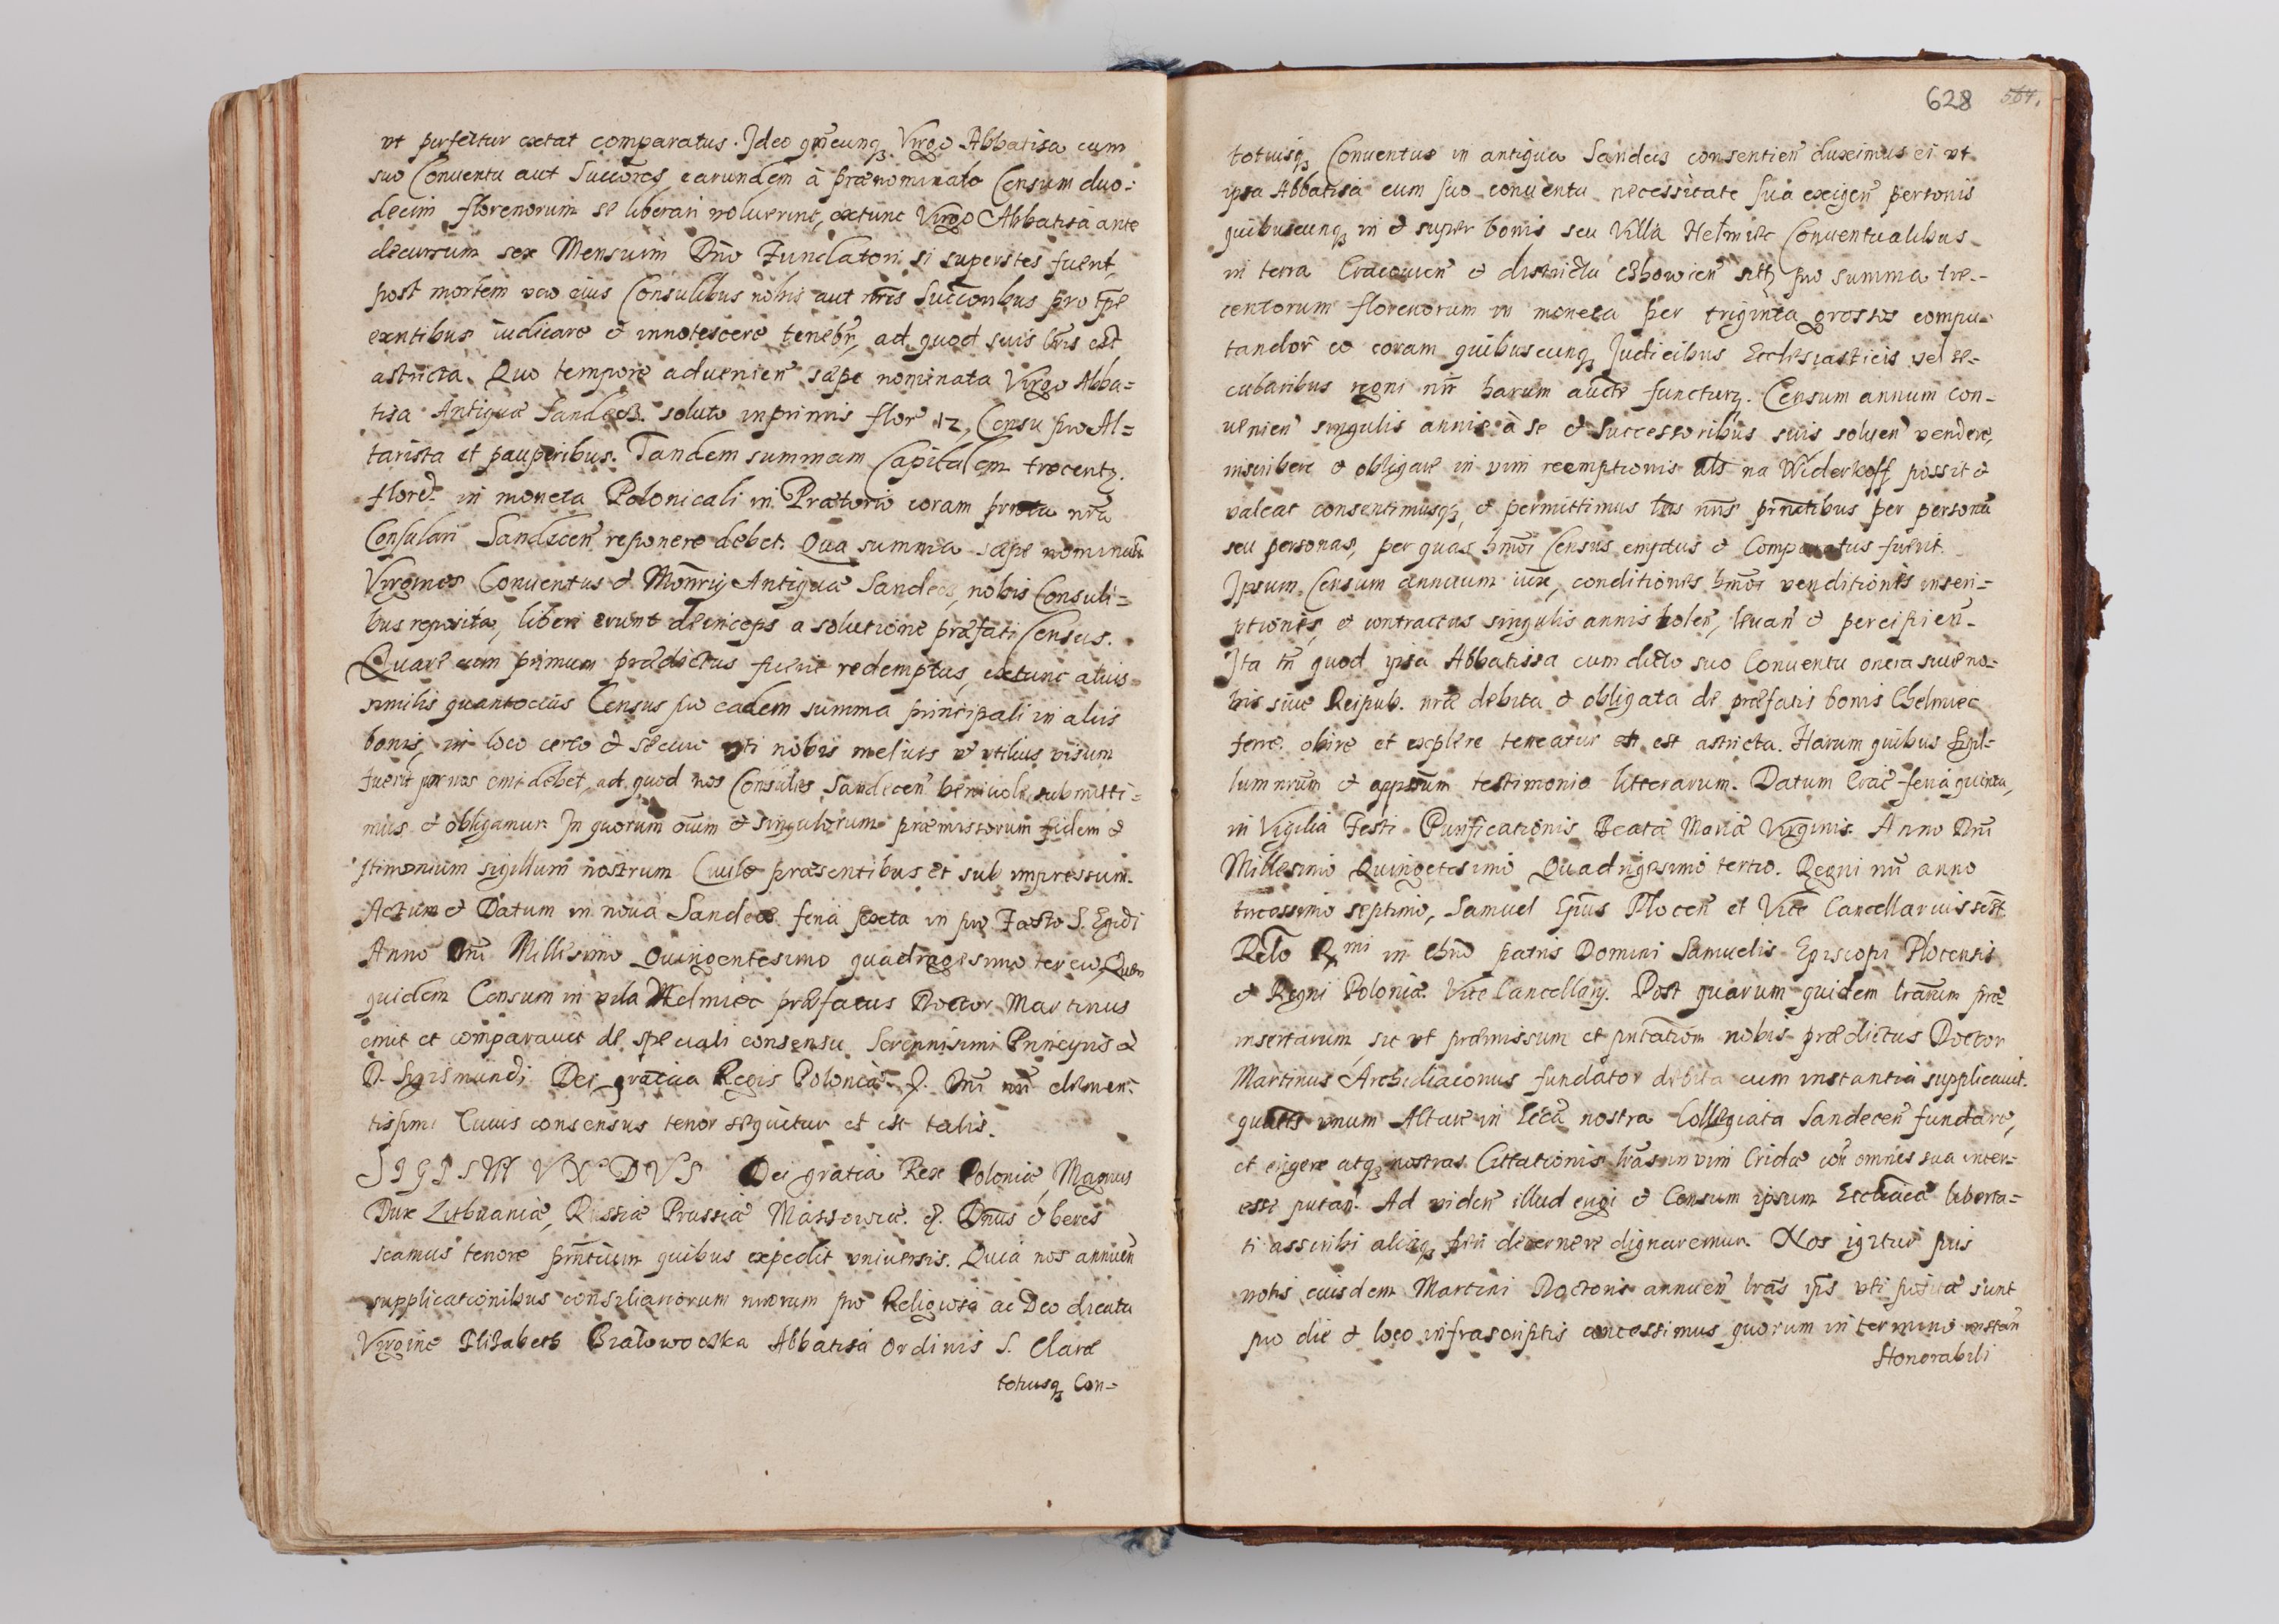 vt perfertur extat comparatus. Ideo qñcunq Virgo Abbatisa cum
suo Conuentu aut Succores earundem à prænominato Censum duo:
decim florenorum se liberari voluerint, extunc Virgo Abbatisa ante
decursum sex Mensium Dño Fundatori si superstes fuerit,
post mortem vero eius Consulibus nobis aut nris Succoribus pro tpe
exntibus iudicare et innotescere teneбr, ad quod suis lris est
astricta. Quo tempore aduenien sæpe nominata Virgo Abba=
tisa Antiqua Sandecz. soluto inprimis flor 12, Censu pro Al=
tarista et pauperibus. Tandem summam Capitalem trecentz.
flore. in moneta Polonicali in Prætorio coram pñtia nra
Consulari Sandecen reponere debet. Qua summa sæpe nominatæ
Virgines Conuentus et Monrij Antiqua Sandecz, nobis Consuli=
bus reposita, liberi erunt deinceps a solutione præfati Census.
Quare cum primum prædictus fuerit redemptus, extunc alius
similis quantocius Census pro eadem summa principali in aliis
bonis, in loco certo et secure vti nobis melius et vtilius visum
fuerit per nos emi debet, ad quod nos Consules Sandecen beniuole submitti=
mus et obligamur. In quorum oium et singulorum præmissorum fidem et
stimonium sigillum nostrum Ciuile præsentibus est sub impressum.
Actum et Datum in noua Sandecz feria sexta in pro Festo S. Egidi
Anno Dni Millesimo Quingentesimo quadragesimo tercio, Quem
quidem Censum in villa Helmiec præfatus Doctor Martinus
emit et comparauit de speciali consensu Serennisimi Principis et
D. Sigismundi Dei gratia Regis Poloniæ. &. Dni nri clemen:
tissimi Cuius consensus tenor sequitur et est talis.
SIGISMVNDVS Dei gratia Rex Poloniæ, Magnus
Dux Lithuaniæ, Russiæ Prussiæ Massouiæ. &. Dnus et heres
scamus tenore pñtium quibus expedit vniuersis. Quia nos annuen
supplicationibus consiliariorum nrorum pro Religiosa ac Deo dicata
Virgine Elizabeth Bralowoczka Abbatisa Ordinis S. Claræ
totiusq Con=
628 564.
totiusq Conuentus in antiqua Sandecz consentien duximus ei vt
ipsa Abbatisa cum suo conuentu necessitate sua exigen personis
quibuscunq in et super bonis seu Villa Helmiec Conuentualibus
in terra Cracouien et districtu Czhowien sitz pro summa tre=
centorum florenorum in moneta per triginta grossos compu=
tandor ac coram quibuscunq Judicibus Ecclesiasticis vel se=
cularibus regni nri harum aucte functurz. Censum annum con=
uenien singulis annis à se et Successoribus suis soluen vendere,
inscribere et obligare in vim reemptionis als na Widerkoff possit et
valeat consentimusq, et permittimus his nris pñtibus per personã
seu personas, per quas hmoi Census emptus et Comparatus fuerit.
Ipsum Censum annuum iux, conditiones hmoi venditionis inscri=
ptionis, et contractus singulis annis tolen, leuan et percipien
Ita tñ quod ipsa Abbatissa cum dicto suo Conuentu onera siue no=
bis siue Reipub. nræ debita et obligata de præfatis bonis Chelmiec
ferre obire et explere teneatur et est astricta. Harum quibus sigil=
lum nrum et appsum testimonio litterarum. Datum Crac feria quinta,
in Vigilia Festi Purificationis Beatæ Mariæ Virginis. Anno Dni
Millesimo Quingetesimo Quadrigesimo tertio. Regni nri anno
tricessimo septimo, Samuel Epus Plocen et Vice Cancellarius sst
Relo Rmi in chro patris Domini Samuelis Episcopi Plocensis
et Regni Poloniæ. Vice Cancellarij. Post quarum quidem lrarum præ
insertarum, sic vt præmissum et pntation nobis prædictus Doctor
Martinus Archidiaconus fundator debita cum instantia supplicauit.
quatts vnum Altare in Ecca nostra Collegiata Sandecen fundare,
et erigere atq nostras Cittationis lras in vim Cridæ con omnes sua inter=
esse putan. Ad viden illud erigi et Censum ipsum Eccliacæ liberta=
ti asscribi aliasq pñ decernere dignaremur. Nos igitur pus
votis eiusdem Martini Doctoris annuen lras ipas vti iustæ sunt
pro die et loco infrascriptis concessimus quorum in termino instan
Honorabili